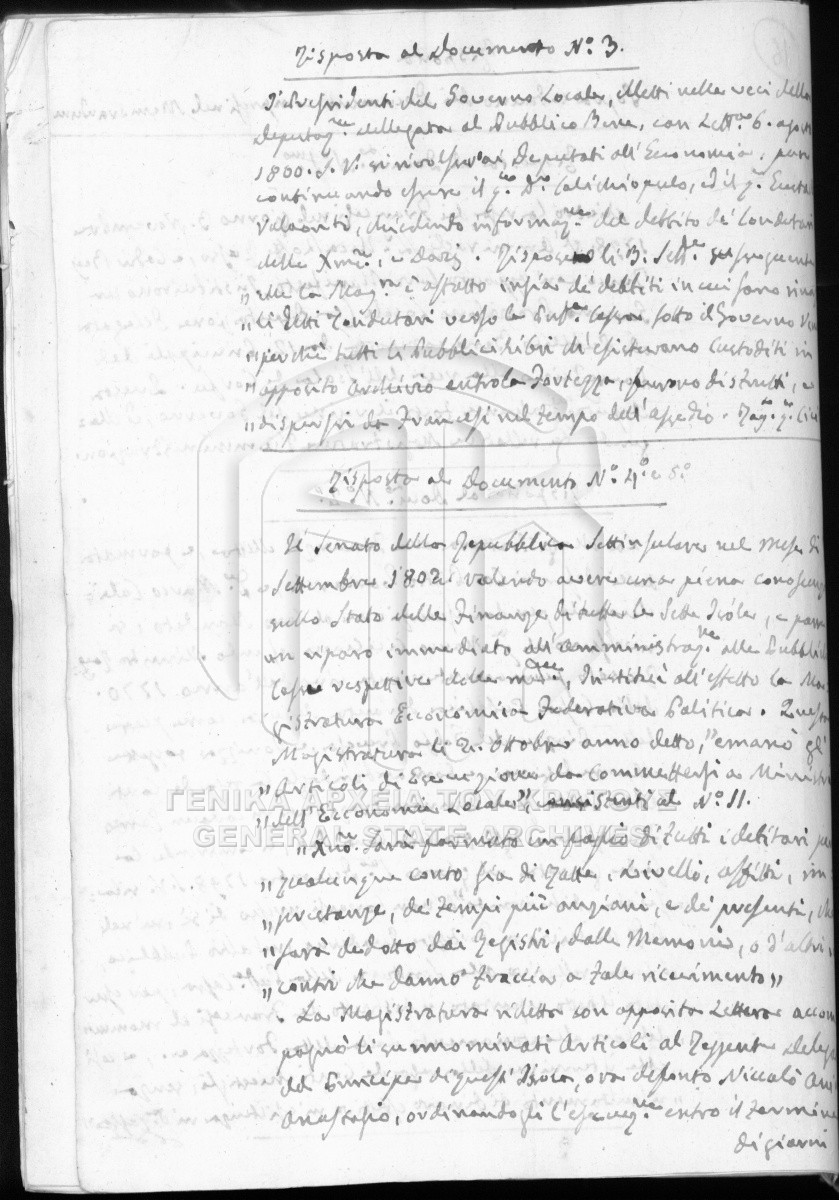 Risposta al Documento Nº 3.
I Presidenti del Governo Locale, elletti nelle veci della
Deputaz.ne dellegata al Pubblico Bene, con Lett.a 6. agosto
1800. S. V. si rivolser' ai Deputati all'Economia, pure
continuando essere il q.m D.r Calichiopulo, ed il q.m
Valsoniti, chiedendo informaz.ne del debito de' Condutari
delle Xme, e Dazj. Risposero li 3. Sett.e susseguente
„ che la Mag.ra è affatto insciа de' debbiti in cui sono
„ li detti Condutari verso la Pub.a Cassa sotto il Governo
„ perchè tutti li Pubblici Libri ch'esistevano custoditi in
„ apposito Archivio entro la Fortezza, furono distrutti, e
„ dispersi da Francesi nel tempo dell'assedio.
Risposta al Documento Nº 4º e 5º
Il Senato della Repubblica Settinsulare nel Mese di
Settembre 1802 volendo avere una piena conoscenza
sullo Stato delle Finanze di tutte le Sette Isole, e
un riparo immediato all'amministraz.ne alle Pubbliche
Casse respettive delle med.e, Instituì all'effetto la Ma
gistratura Economica Federativa Politica. Questa
Magistratura li 21. Ottobre anno detto, „ emanò gl'
„ Articoli di Esecuzione da Commettersi a Ministri
„ dell'Economia Locale„, consistenti al Nº 11.
„ Xmo. Sarà formato un foglio di tutti i debitari per
„ qualunque conto sia di Ratte, Livelli, affitti, im
„ prestanze, de' tempi più anziani, e de' presenti, che
„ sarà dedotto dai Registri, dalle Memorie, o d'altri
„ contri che danno traccia a tale ricevimento„
. La Magistratura ridetta con apposita Lettera accom
pagnò li summominati Articoli al Reggente Delega
del Principe di quest' Isola, ora defonto Niccolò
Anastasio, ordinandogli l'esecuz.ne entro il termine
di giorni
ΓΕΝΙΚΑ ΑΡΧΕΙΑ ΤΟΥ ΚΡΑΤΟΥΣ
GENERAL STATE ARCHIVES